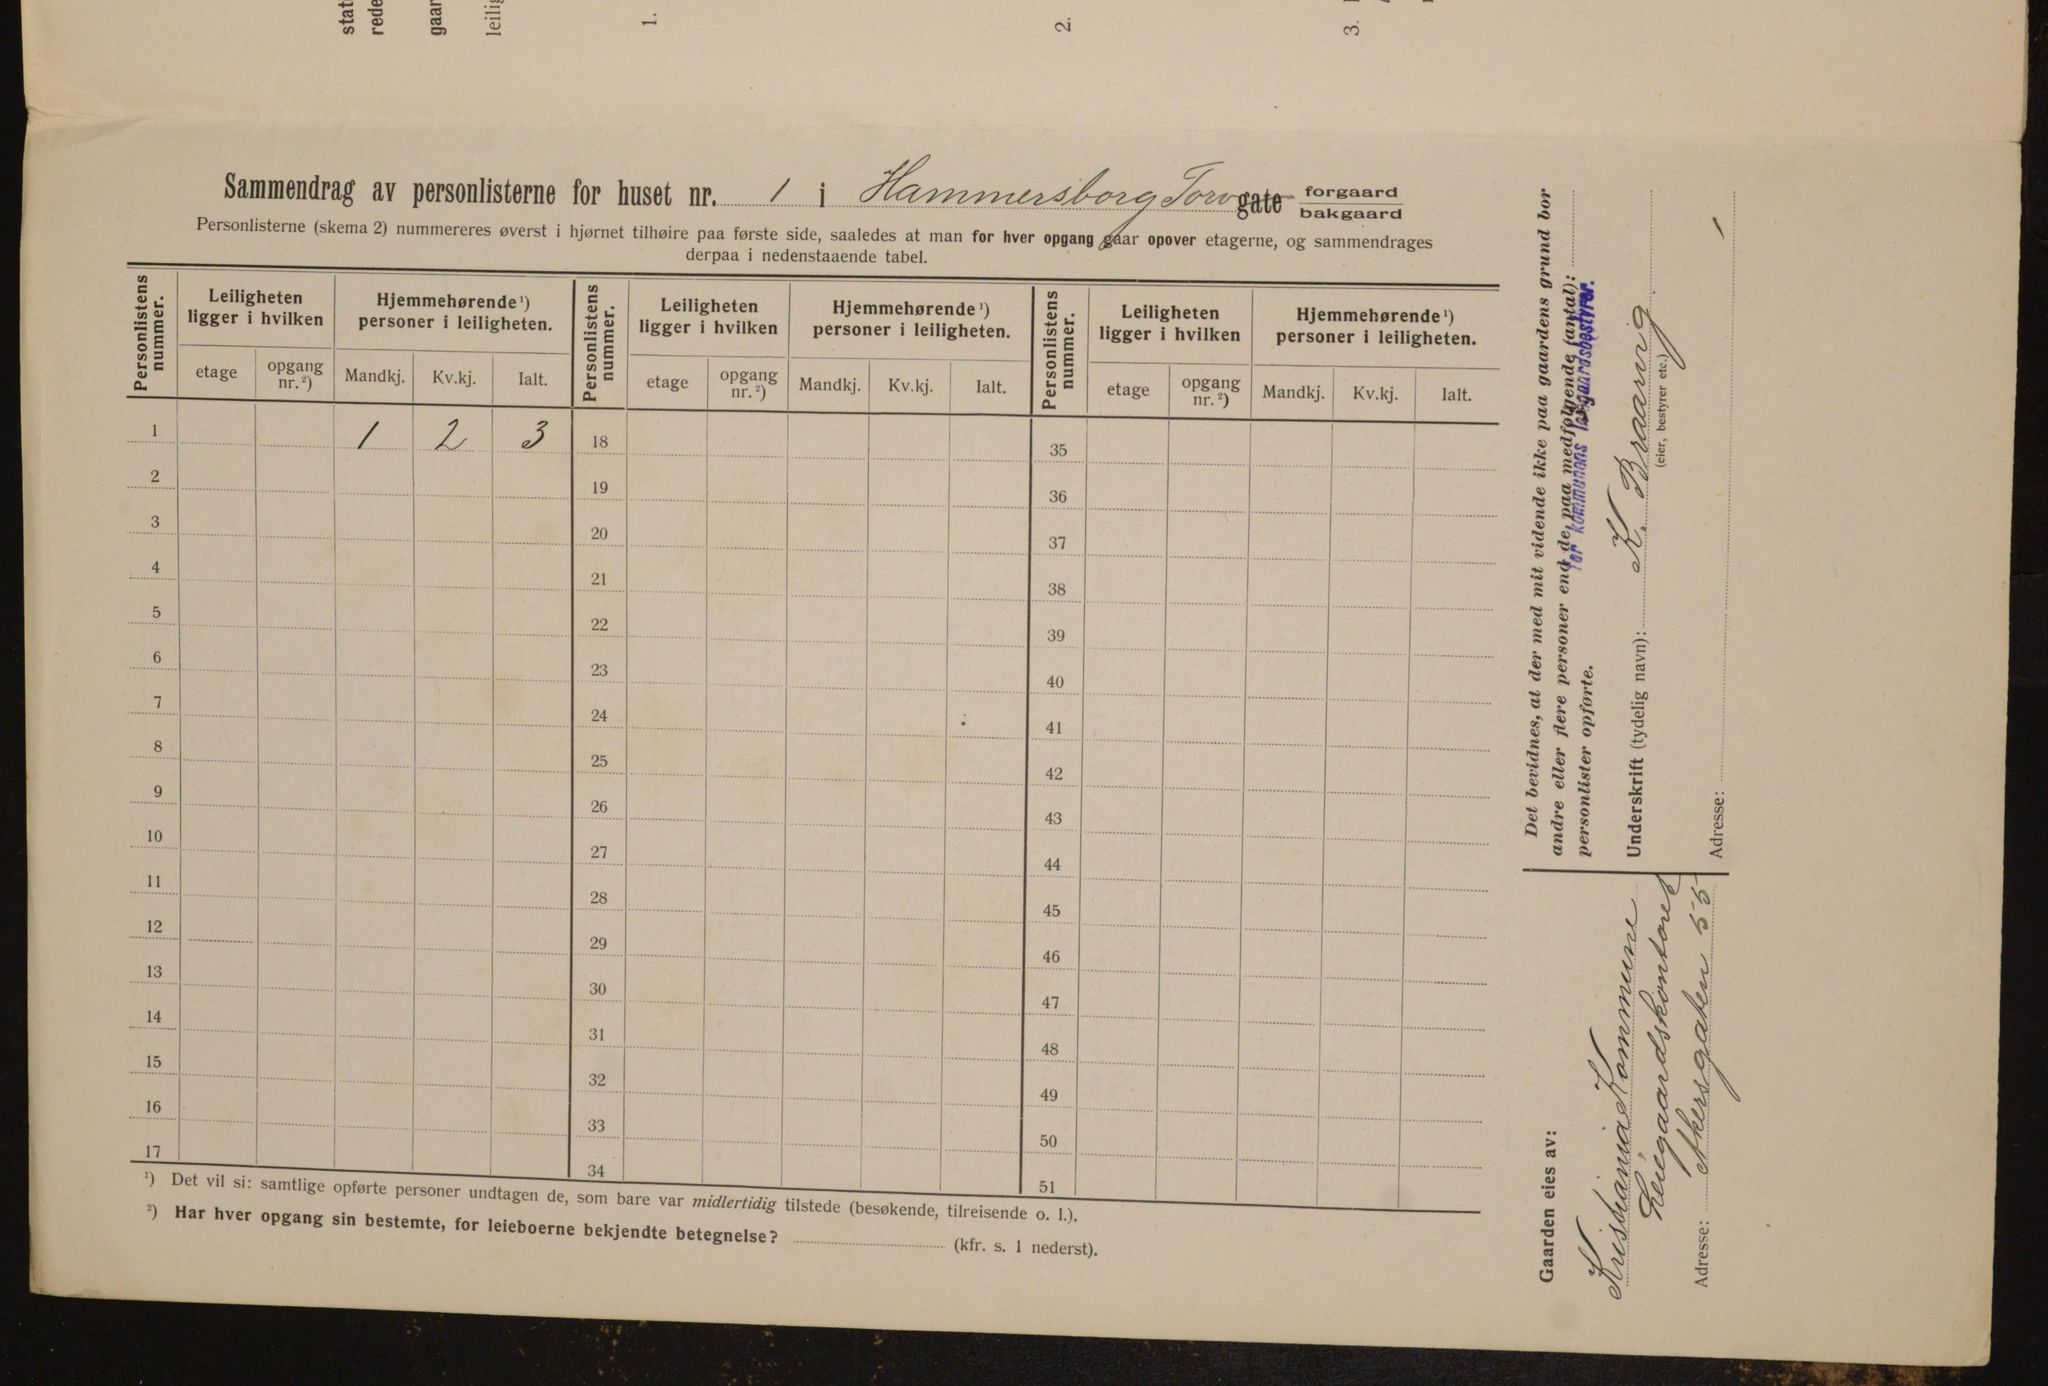 stat
rede
gaar
leilig
1.
2.
3.
Sammendrag av personlisterne for huset nr. 1 i Hammersborg Torv gate forgaard
bakgaard
Personlisterne (skema 2) nummereres øverst i hjørnet tilhøire paa første side, saaledes at man for hver opgang gaar opover etagerne, og sammendrages
derpaa i nedenstaaende tabel.
Personlistens nummer. Leiligheten ligger i hvilken Hjemmehørende ¹) personer i leiligheten. Personlistens nummer. Leiligheten ligger i hvilken Hjemmehørende ¹) personer i leiligheten. Personlistens nummer. Leiligheten ligger i hvilken Hjemmehørende ¹) personer i leiligheten.
etage opgang nr. ²) Mandkj. Kv.kj. Ialt. etage opgang nr. ²) Mandkj. Kv.kj. Ialt. etage opgang nr. ²) Mandkj. Kv.kj. Ialt.
1 1 2 3 18 35
2 19 36
3 20 37
4 21 38
5 22 39
6 23 40
7 24 41
8 25 42
9 26 43
10 27 44
11 28 45
12 29 46
13 30 47
14 31 48
15 32 49
16 33 50
17 34 51
¹) Det vil si: samtlige opførte personer undtagen de, som bare var midlertidig tilstede (besøkende, tilreisende o. l.).
²) Har hver opgang sin bestemte, for leieboerne bekjendte betegnelse? (kfr. s. 1 nederst).
Det bevidnes, at der med mit vidende ikke paa gaardens grund bor
andre eller flere personer end de, paa medfølgende (antal): 1
personlister opførte.
for kommunens leiegaardsbestyrer.
Underskrift (tydelig navn): K. Braarvig
(eier, bestyrer etc.)
Adresse:
Gaarden eies av:
Kristiania Kommune
Leiegaardskontoret
Adresse: Akersgaten 55